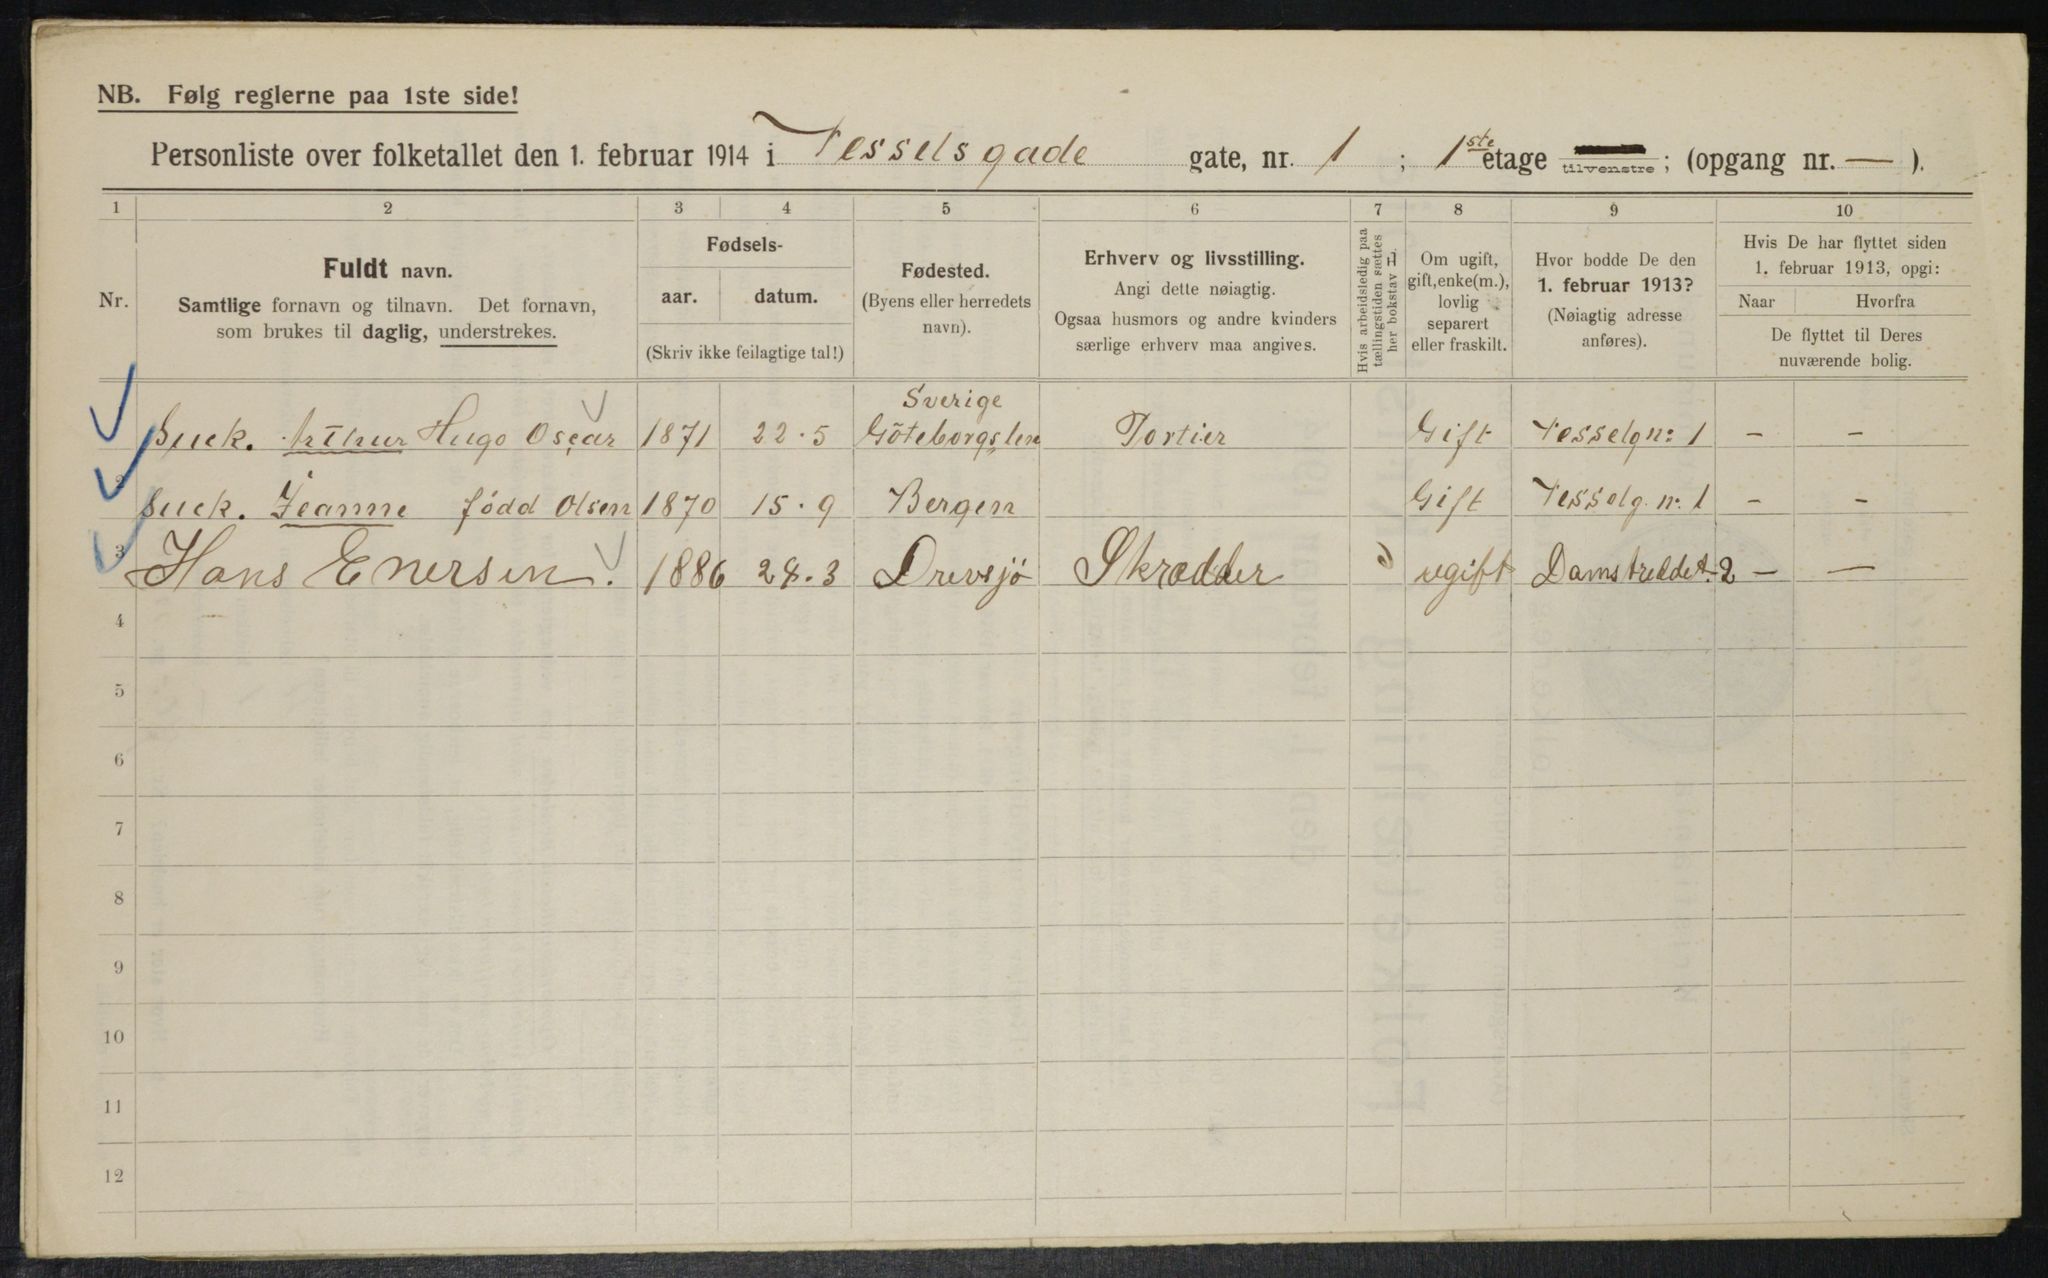 NB. Følg reglerne paa 1ste side!
Personliste over folketallet den 1. februar 1914 i Vesselsgade gate, nr. 1 ; 1ste etage tilvenstre; (opgang nr. — ).
1 2 3 4 5 6 7 8 9 10
Nr.
Fuldt navn.
Samtlige fornavn og tilnavn. Det fornavn,
som brukes til daglig, understrekes.
Fødsels-
aar. datum.
(Skriv ikke feilagtige tal!)
Fødested.
(Byens eller herredets
navn).
Erhverv og livsstilling.
Angi dette nøiagtig.
Ogsaa husmors og andre kvinders
særlige erhverv maa angives.
Hvis arbeidsledig paa
tællingstiden sættes
her bokstav L.
Om ugift,
gift, enke(m.),
lovlig
separert
eller fraskilt.
Hvor bodde De den
1. februar 1913?
(Nøiagtig adresse
anføres).
Hvis De har flyttet siden
1. februar 1913, opgi:
Naar Hvorfra
De flyttet til Deres
nuværende bolig.
Sverige
Suck. Arthur Hugo Oscar 1871 22.5 Göteborgslen Portier Gift Vesselgn: 1 — —
2 Suck. Jeanne född Olsen 1870 15.9 Bergen Gift Vesselg. n: 1 — —
3 Hans Enersen. 1886 28.3 Drevsjö Skrædder ugift Damstreddet. 2 — —
4
5
6
7
8
9
10
11
12